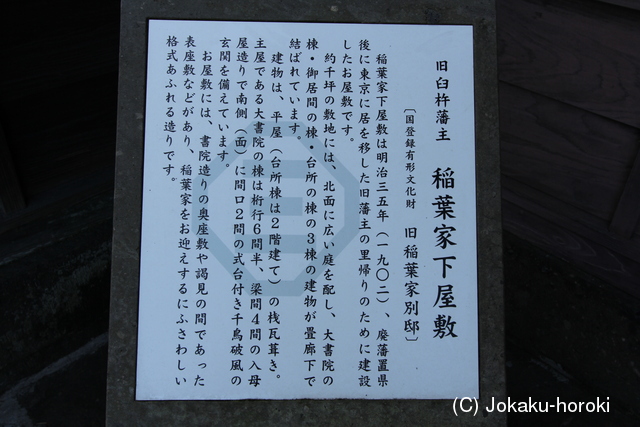 旧臼杵藩主 稲葉家下屋敷
〔国登録有形文化財 旧稲葉家別邸〕
稲葉家下屋敷は明治三五年(一九〇二)、廃藩置県
後に東京に居を移した旧藩主の里帰りのために建設
したお屋敷です。
約千坪の敷地には、北面に広い庭を配し、大書院の
棟・御居間の棟・台所の棟の3棟の建物が畳廊下で
結ばれています。
建物は、平屋(台所棟は2階建て)の桟瓦葺き。
主屋である大書院の棟は桁行6間半、梁間4間の入母
屋造りで南側(面)に間口2間の式台付き千鳥破風の
玄関を備えています。
お屋敷には、書院造りの奥座敷や謁見の間であった
表座敷などがあり、稲葉家をお迎えするにふさわしい
格式あふれる造りです。
(C) Jokaku-horoki